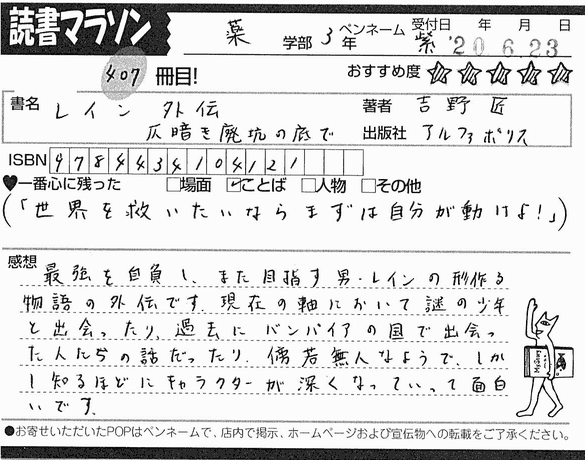 読書マラソン
薬 学部 3年 ペンネーム 紫 受付日 '20 年 6 月 23 日
407 冊目! おすすめ度 ☆☆☆☆☆
書名 レイン 外伝 著者 吉野 匠
仄暗き廃坑の底で 出版社 アルファポリス
ISBN 9784434104121
♥一番心に残った □場面 ☑ことば □人物 □その他
(「世界を救いたいならまずは自分が動けよ!」)
感想 最強を自負し、また目指す男・レインの形作る
物語の外伝です。現在の軸において謎の少年
と出会ったり、過去にバンパイアの国で出会っ
た人たちの話だったり。傍若無人なようで、しか
し知るほどにキャラクターが深くなっていって面白
いです。
●お寄せいただいたPOPはペンネームで、店内で掲示、ホームページおよび宣伝物への転載をご了承ください。